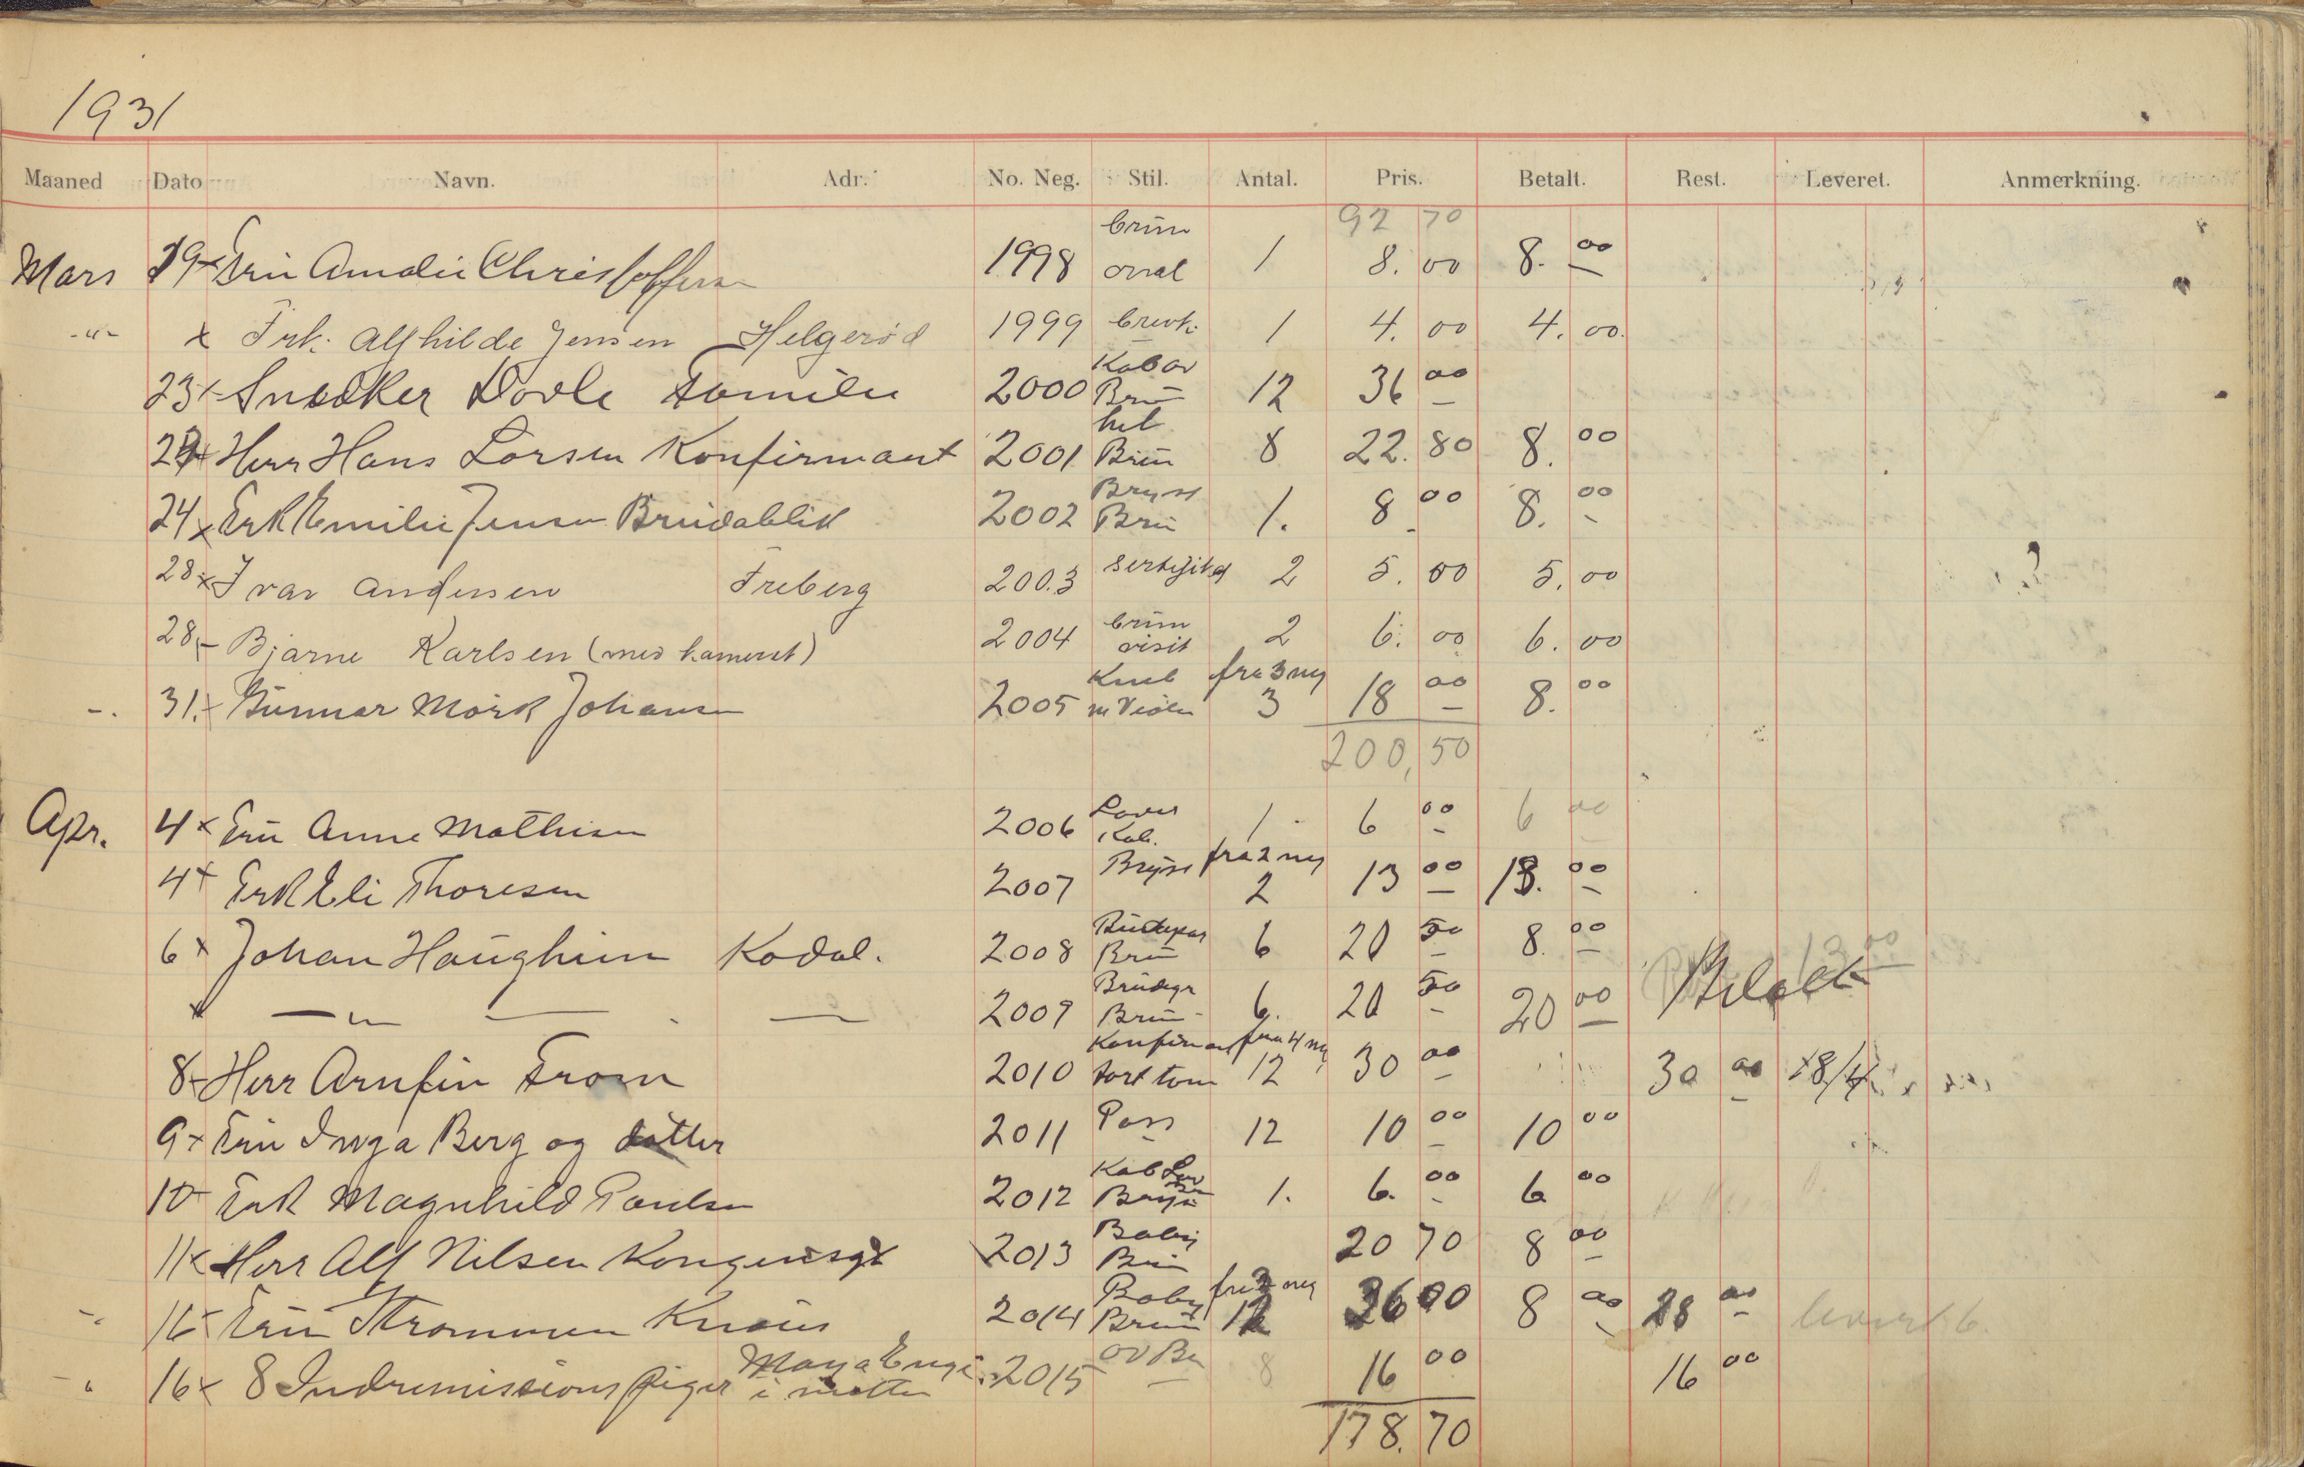 1931
Maaned Dato Navn. Adr. No. Neg. Stil. Antal. Pris. Betalt. Rest. Leveret. Anmerkning.
92 70
Mars 19 x Fru Amalie Christoffersen 1998 brun oval 1 8. 00 8. 00
-"- x Frk: Alfhilde Jensen Helgerød 1999 brevk. 1 4. 00 4. 00.
23 x Snedker Dovle Familie 2000 Kab ov Brun 12 36 00
24 x Herr Hans Larsen Konfirmant 2001 hel Brun 8 22. 80 8. 00
24 x Frk Emilie Jensen Brudablik 2002 Bryst Brun 1. 8 00 8. 00
28 x Ivar Andersen Freberg 2003 sertifikat 2 5. 00 5. 00
28 - Bjarne Karlsen (med kamerat) 2004 brun visit 2 6. 00 6. 00
-. 31. x Gunnar Mørk Johansen 2005 Kneb m Violin fra 3 neg 3 18 00 8. 00
200, 50
Apr. 4 x Fru Anne Mathisen 2006 Kab. 1 6 00 6 00
4 x Frk Eli Thoresen 2007 Bryst fra 2 neg 2 13 00 13. 00
6 x Johan Haughem Kodal. 2008 Brudepar Brun 6 20 50 8. 00 13 00
x — " — — 2009 Brudepr Brun 6. 20 50 20 00 Betalt
8 - Herr Arnfin From 2010 Konfirmant sort tom fra 4 neg 12 30 00 30 00 18/4
9 x Fru Inga Berg og datter 2011 Pass 12 10 00 10 00
10 Frk Magnhild Paulsen 2012 Kab Bryst 1. 6. 00 6 00
11 x Herr Alf Nilsen Kongensgt 2013 Baby Brun 20 70 8 00
16 x Fru Strømmen 2014 Baby Brun fra 3 neg 12 36 00 8 00 28 00 levert 6.
16 x 8 Indremissions piger i midten 2015 ov Br 8 16 00 16 00
178. 70